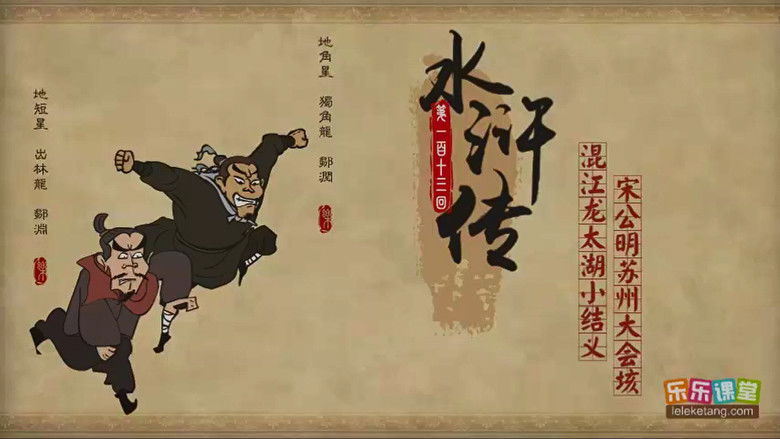 水浒传
第一百十三回
混江龙太湖小结义
宋公明苏州大会垓
地角星 獨角龍 鄒潤
地短星 出林龍 鄒淵
乐乐课堂
leleketang.com